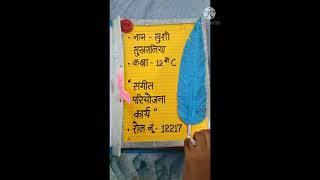 • नाम - खुशी
सुखसलिया
• कक्षा - 12 वीं C
" संगीत
परियोजना
कार्य "
• रोल नॅ. - 12217